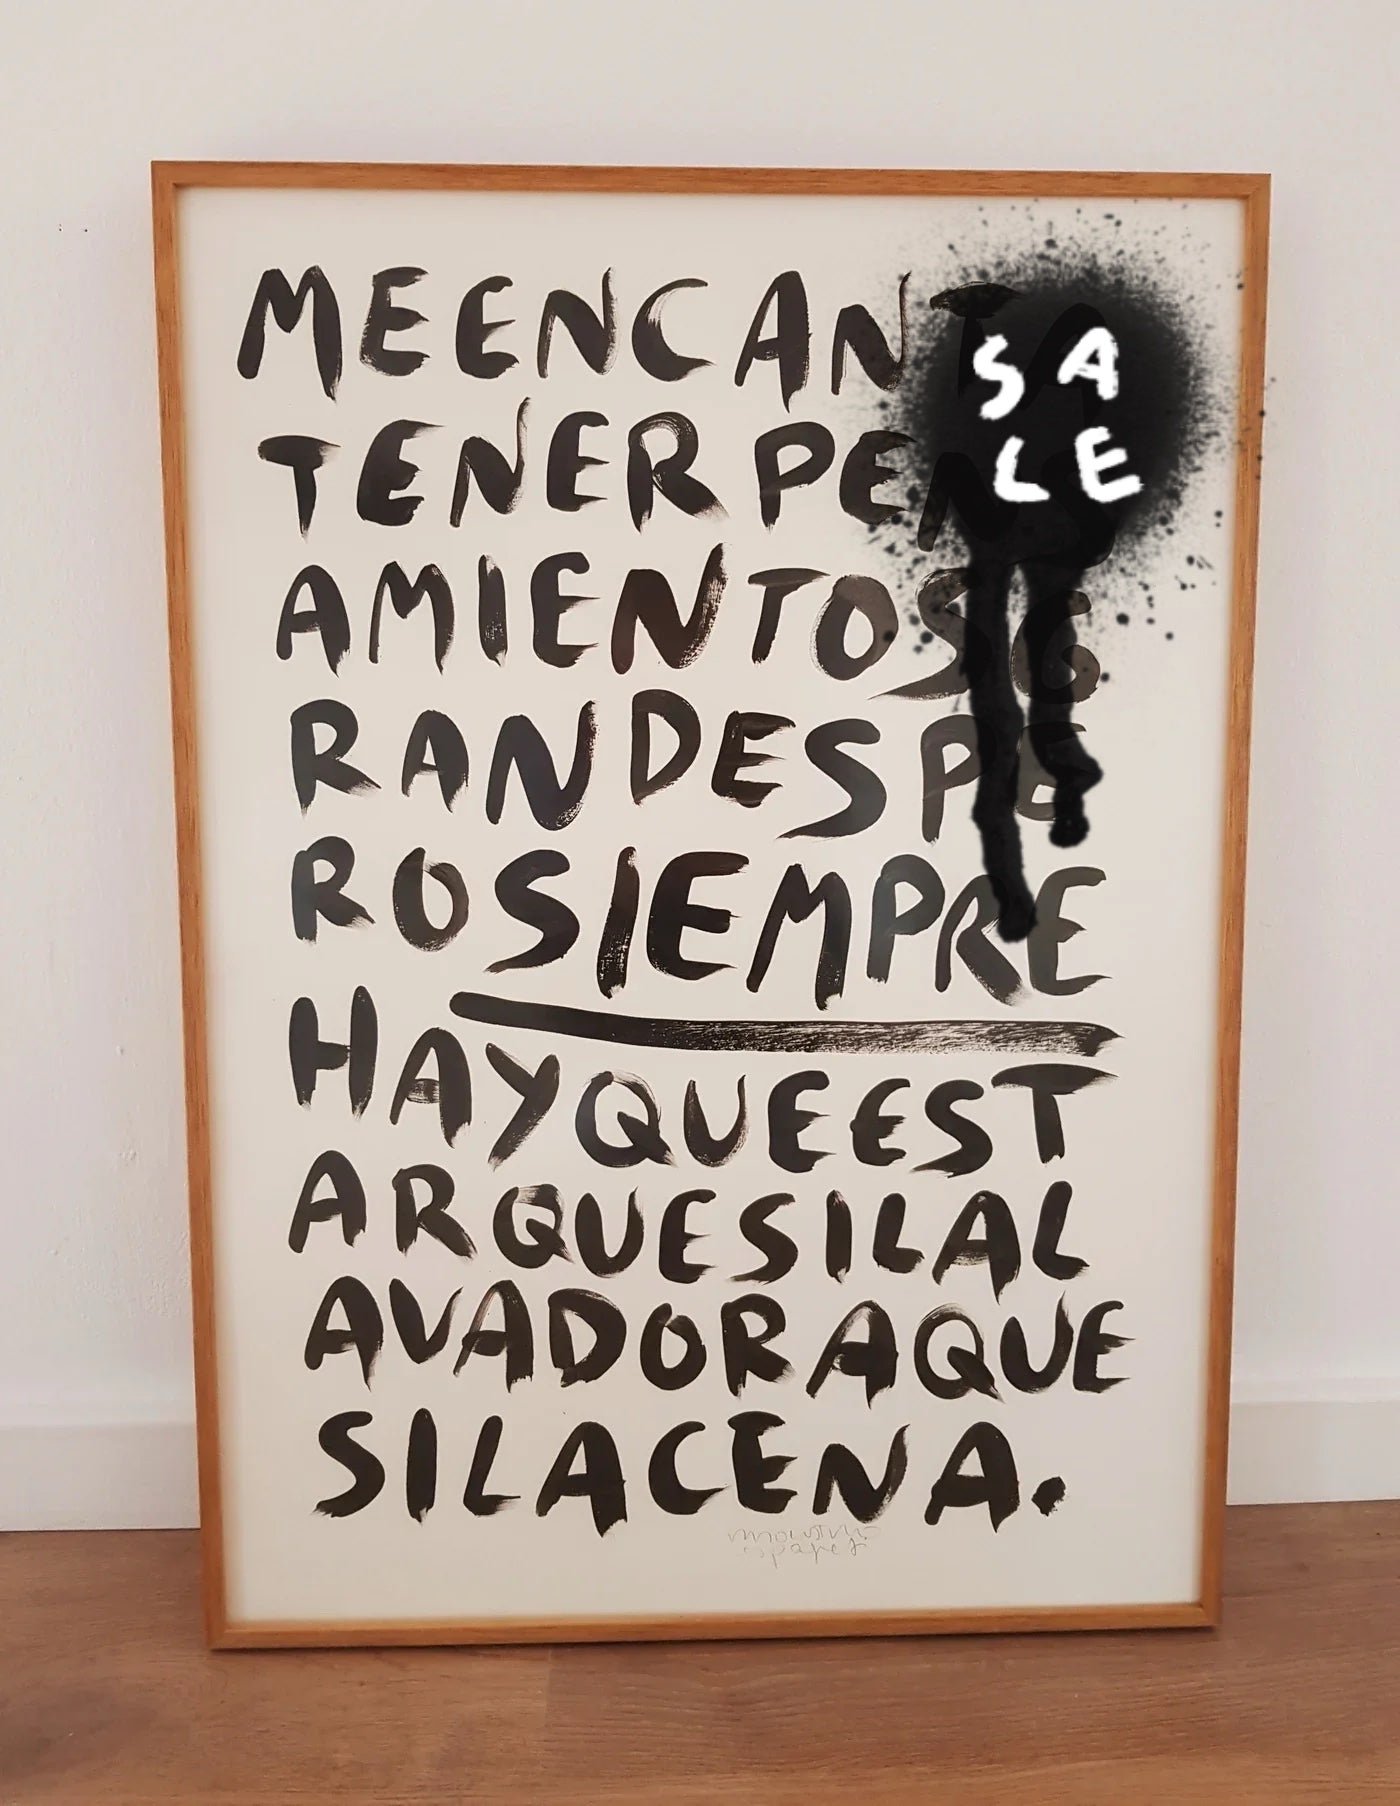 MEENCANTA
SA
LE
TENERPENS
AMIENTOSG
RANDESPE
ROSIEMPRE
HAYQUEEST
ARQUESILAL
AVADORAQUE
SILACENA.